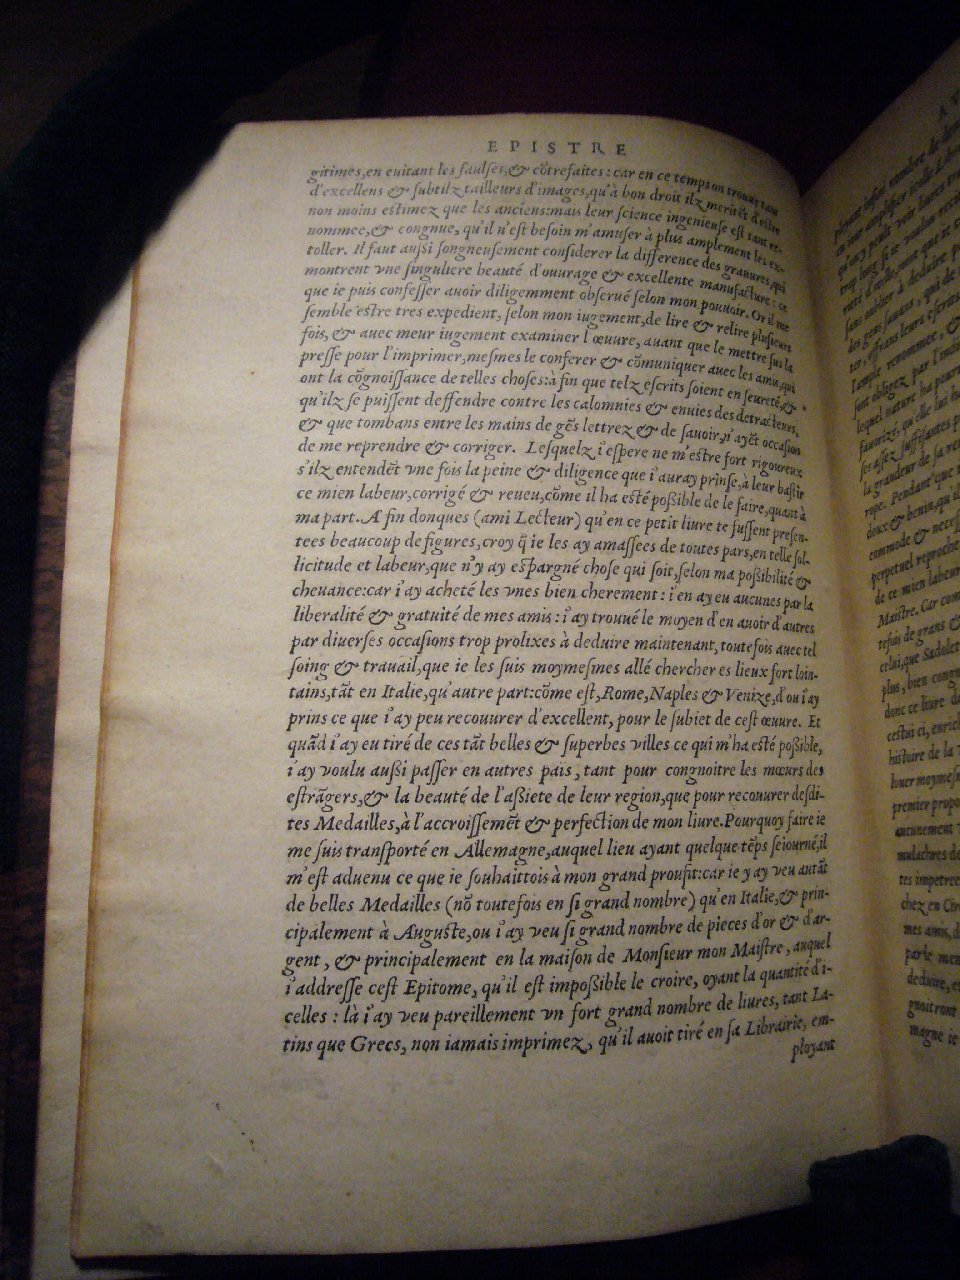 EPISTRE
gitimes, en euitant les faulses, & cõtrefaites : car en ce temps on trouue tant
d'excellens & subtilz tailleurs d'images, qu'à bon droit ilz meritẽt d'estre
non moins estimez que les anciens: mais leur science ingenieuse est tant re-
nommee, & congnue, qu'il n'est besoin m'amuser à plus amplement les ex-
toller. Il faut aussi songneusement considerer la difference des graueures, qui
montrent vne singuliere beauté d'ouurage & excellente manufacture : ce
que ie puis confesser auoir diligemment obserué selon mon pouuoir. Or il me
semble estre tres expedient, selon mon iugement, de lire & relire plusieurs
fois, & auec meur iugement examiner l'œuure, auant que le mettre sus la
presse pour l'imprimer, mesmes le conferer & cõmuniquer auec les amis, qui
ont la cõgnoissance de telles choses: à fin que telz escrits soient en seureté, &
qu'ilz se puissent deffendre contre les calomnies & enuies des detracteurs,
& que tombans entre les mains de gẽs lettrez & de sauoir, n'ayẽt occasion
de me reprendre & corriger. Lesquelz i'espere ne m'estre fort rigoureux
s'ilz entendẽt vne fois la peine & diligence que i'auray prinse, à leur bastir
ce mien labeur, corrigé & reueu, cõme il ha esté possible de le faire, quant à
ma part. A fin donques (ami Lecteur) qu'en ce petit liure te fussent presen-
tees beaucoup de figures, croy q̃ ie les ay amassees de toutes pars, en telle sol-
licitude et labeur, que n'y ay espargné chose qui soit, selon ma possibilité &
cheuance: car i'ay acheté les vnes bien cherement : i'en ay eu aucunes par la
liberalité & gratuité de mes amis : i'ay trouué le moyen d'en auoir d'autres
par diuerses occasions trop prolixes à deduire maintenant, toutefois auec tel
soing & trauail, que ie les suis moymesmes allé chercher es lieux fort loin-
tains, tãt en Italie, qu'autre part: cõme est, Rome, Naples & Venize, d'ou i'ay
prins ce que i'ay peu recouurer d'excellent, pour le subiet de cest œuure. Et
quãd i'ay eu tiré de ces tãt belles & superbes villes ce qui m'ha esté possible,
i'ay voulu aussi passer en autres pais, tant pour congnoitre les mœurs des
estrãgers, & la beauté de l'assiete de leur region, que pour recouurer desdi-
tes Medailles, à l'accroissemẽt & perfection de mon liure. Pourquoy faire ie
me suis transporté en Allemagne, auquel lieu ayant quelque tẽps seiourné, il
m'est aduenu ce que ie souhaittois à mon grand proufit: car ie y ay veu autãt
de belles Medailles (nõ toutefois en si grand nombre) qu'en Italie, & prin-
cipalement à Auguste, ou i'ay veu si grand nombre de pieces d'or & d'ar-
gent, & principalement en la maison de Monsieur mon Maistre, auquel
i'addresse cest Epitome, qu'il est impossible le croire, oyant la quantité d'i-
celles : là i'ay veu pareillement vn fort grand nombre de liures, tant La-
tins que Grecs, non iamais imprimez, qu'il auoit tiré en sa Librairie, em-
ployant
ployant infini nombre de
en tout amplifier icelle
qu'ay peult voir liures
trop long si ie voulois
sans oublier à deduire
des gens sauans, qui de
ter, offrans leurs escrits
l'ample renommee, &
sont obligez par
lequel nature ha
fauorizé, qu'elle lui ha
ses assez suffisantes
la grandeur de sa
rope. Pendant que
doux & benin, qu'il
commode & neces
perpetuel reproche
de ce mien labeur
Maistre. Car com
tefois de grans &
celui, que Sadolet
plus, bien congn
donc ce liure de
cestui ci, enrich
histoire de la
louer moymes
premier propo
aucunement
mulachres de
tes impetree
chez en Cir
mes amis, d
parle men
deduire, e
gnoitront
magne ie